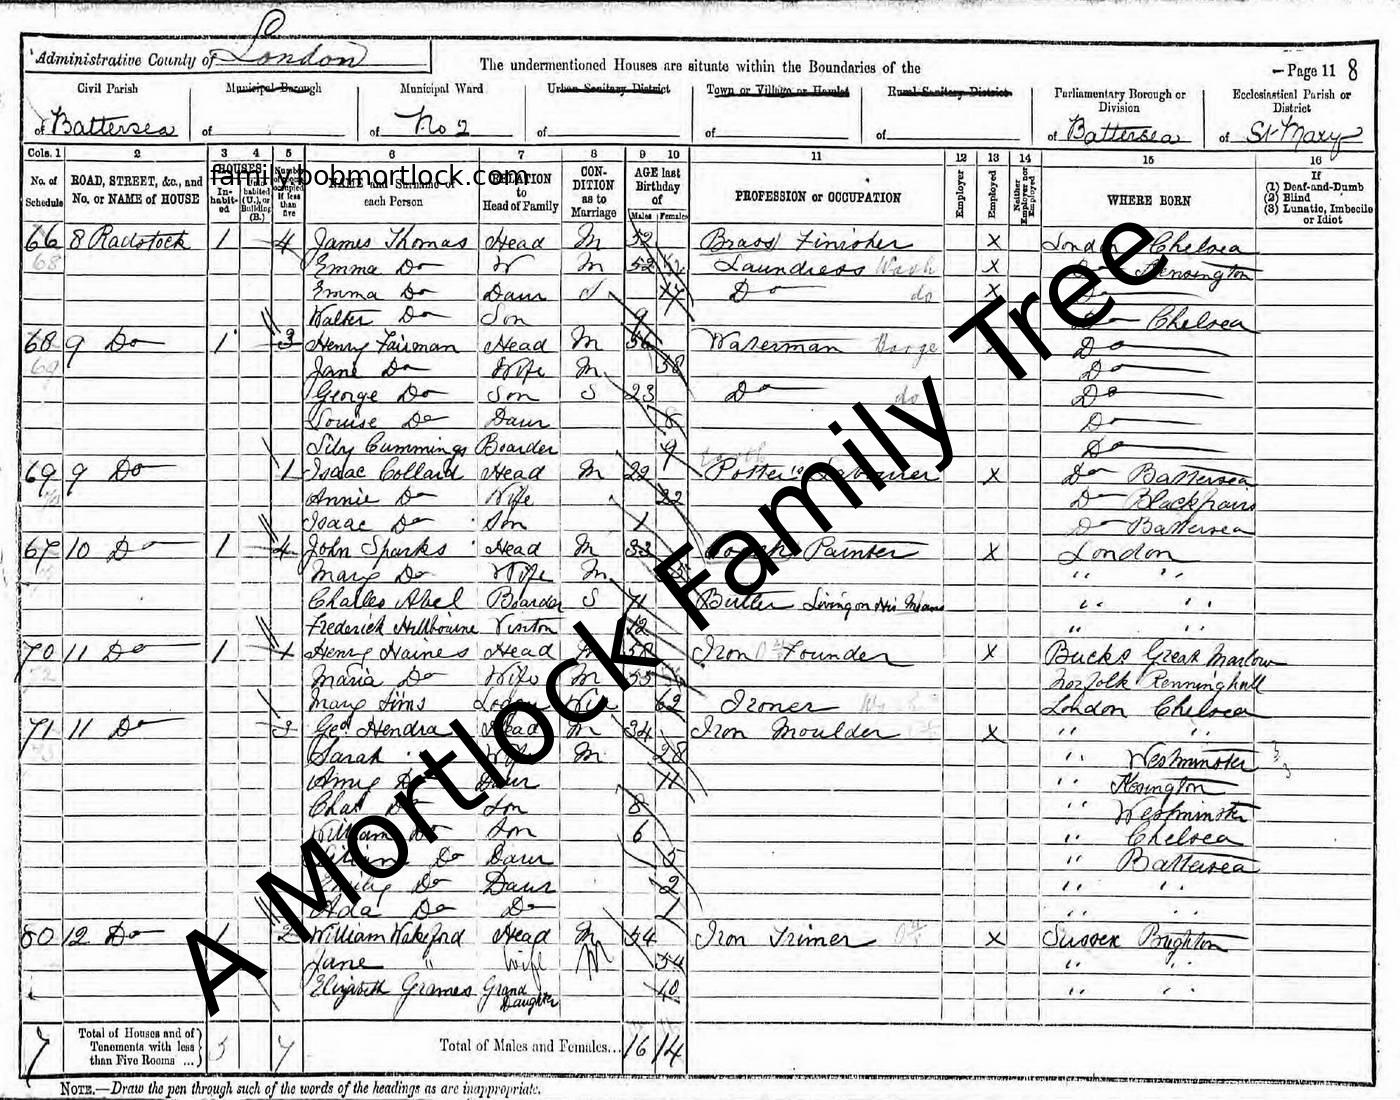 Administrative County of London
The undermentioned Houses are situate within the Boundaries of the
Page 11 8
Civil Parish Municipal Borough Municipal Ward Urban Sanitary District Town or Village or Hamlet Rural Sanitary District Parliamentary Borough or Division Ecclesiastical Parish or District
of Battersea of of No 2 of of of of Battersea of St Mary
Cols. 1 2 3 4 5 6 7 8 9 10 11 12 13 14 15 16
No. of Schedule ROAD, STREET, &c., and No. or NAME of HOUSE HOUSES In-habit-ed NAME and Surname of each Person RELATION to Head of Family CON-DITION as to Marriage AGE last Birthday of Males Females PROFESSION or OCCUPATION Employer Employed Neither Employer nor Employed WHERE BORN If (1) Deaf-and-Dumb (2) Blind (3) Lunatic, Imbecile or Idiot
family.bobmortlock.com
66 8 Radstock 1 4 James Thomas Head M 52 Brass Finisher X London Chelsea
68 Emma Do W M 52 Laundress Wash X Do Kensington
Emma Do Daur S 17 Do do X Do
Walter Do Son 9 Do Chelsea
68 9 Do 1 3 Henry Fairman Head M 56 Waterman Barge X Do
69 Jane Do Wife M 58 Do
George Do Son S 23 Do do Do
Louise Do Daur Do
Lily Cummings Boarder 9 Do
69 9 Do 1 Isaac Collard Head M 22 Potter's Labourer X Do Battersea
Annie Do Wife 22 Do Blackfriars
Isaac Do Son 1 Do Battersea
67 10 Do 1 4 John Sparks Head M 33 Painter X London
Mary Do Wife M " "
Charles Abel Boarder S 71 Butler Living on His Means " "
Frederick Visitor 12 " "
70 11 Do 1 1 Henry Haines Head M 58 Iron Founder X Bucks Great Marlow
Maria Do Wife M 55 Norfolk Kenninghall
Mary Sims Wid 62 Ironer London Chelsea
71 11 Do 3 Geo Hendra Head M 34 Iron Moulder X " "
Sarah " Wife M 28 " Westminster
Amy Do Daur 11 " Kesington
Chas Do Son 8 " Westminster
William Do Son 6 " Chelsea
Do Daur 5 " Battersea
Emily Do Daur 2 " "
Ada Do Do 1 " "
80 12 Do 1 2 William Wakeford Head M 54 Iron Trimer X Sussex Brighton
Jane " Wife M 54 " "
Elizabeth Grames Grand Daughter 10 " "
7 Total of Houses and of Tenements with less than Five Rooms ... 5 7 Total of Males and Females... 16 14
NOTE.—Draw the pen through such of the words of the headings as are inappropriate.
A Mortlock Family Tree